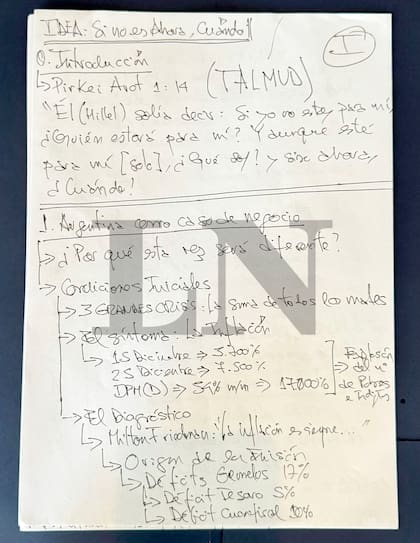 IDEA: Si no es Ahora, Cuándo
I
0. Introducción
↳ Pirkei Avot 1:14 (TALMUD)
"Él (Hillel) solía decir: Si yo no estoy para mí,
¿Quién estará para mí? Y aunque esté
para mí [solo], ¿Qué soy? y si no ahora,
¿Cuándo?
1. Argentina como caso de negocio
↳ ¿Por qué esta vez será diferente?
↳ Condiciones Iniciales
↳ 3 GRANDES CRISIS: la suma de todos los males
↳ El síntoma: La Inflación
↳ 15 Diciembre ⇒ 3.700%
↳ 25 Diciembre ⇒ 7.500%
↳ IPM(D) ⇒ 54% m/m ⇒ 17.000%
Explosión
del nº
de Pobres
e Indigtes
↳ El Diagnóstico
↳ Milton Friedman: "la inflación es siempre..."
↳ Origen de la Emisión
↳ Déficits Gemelos 17%
↳ Déficit Tesoro 5%
↳ Déficit Cuasifiscal 10%
LN